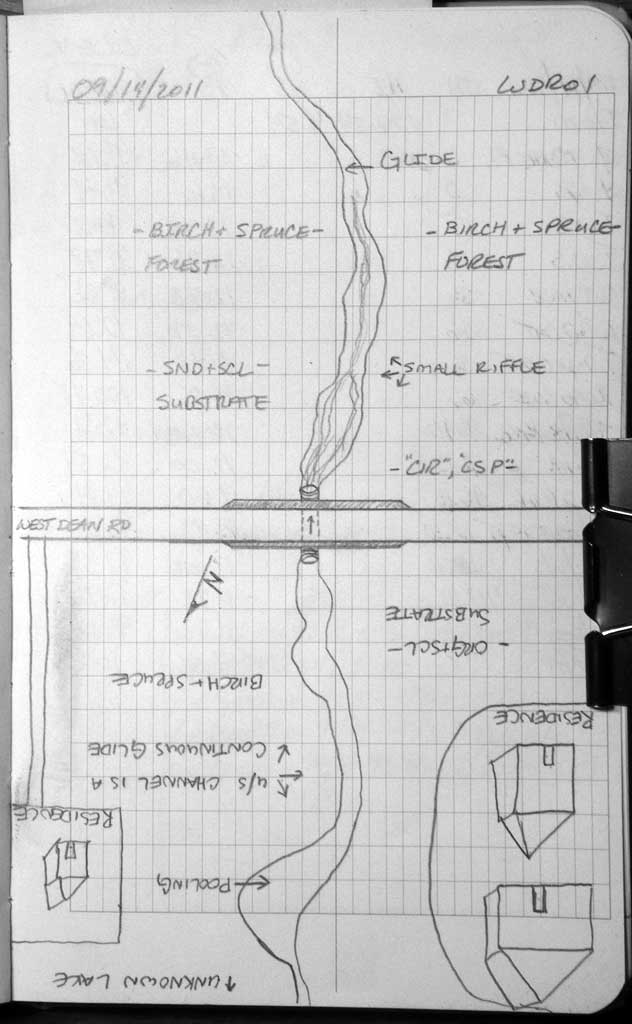 09/14/2011
WDR01
GLIDE
-BIRCH + SPRUCE-
FOREST
-BIRCH + SPRUCE-
FOREST
SMALL RIFFLE
-SND+SCL-
SUBSTRATE
-"CIR", "CSP"-
WEST DEAN RD
N
-ORG+SCL-
SUBSTRATE
BIRCH + SPRUCE
U/S CHANNEL IS A
CONTINUOUS GLIDE
RESIDENCE
RESIDENCE
POOLING
UNKNOWN LAKE